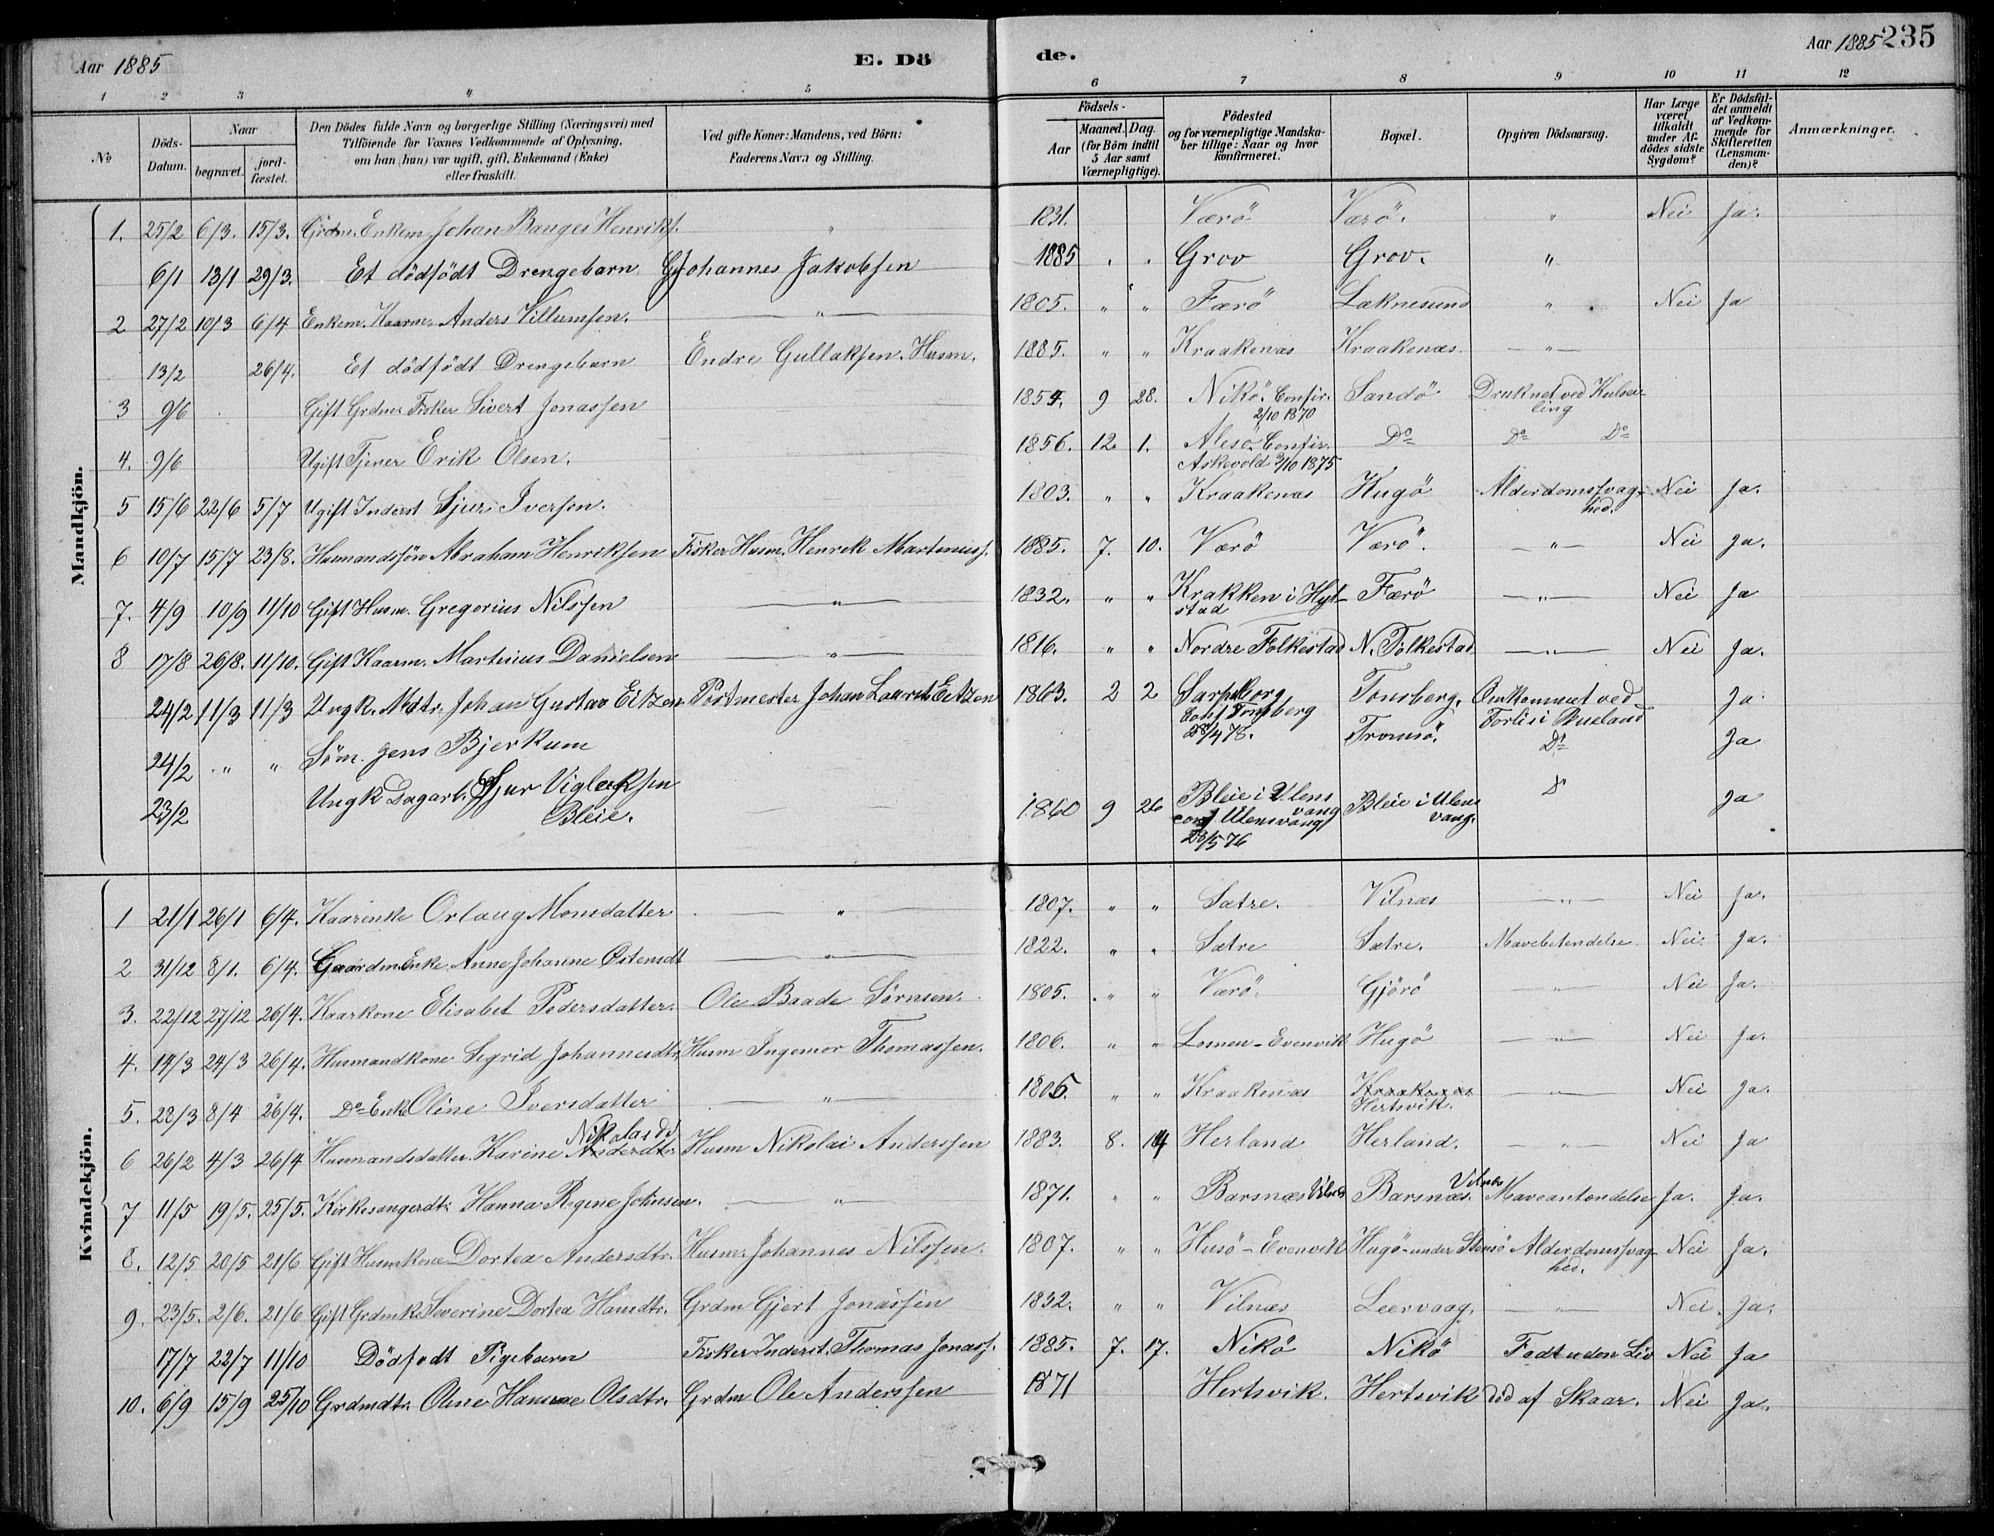 Aar 1885
E. Dö
de.
Aar 1885 235
1 2 3 4 5 6 7 8 9 10 11 12
No
Döds-Datum.
Naar
begravet.
jord-fæstet.
Den Dödes fulde Navn og borgerlige Stilling (Næringsvei) med
Tilföiende for Voxnes Vedkommende af Oplysning,
om han (hun) var ugift, gift, Enkemand (Enke)
eller fraskilt.
Ved gifte Koner: Mandens, ved Börn:
Faderens Navn og Stilling.
Födsels-
Aar
Maaned. Dag.
(for Börn indtil
5 Aar samt
Værnepligtige).
Födested
og for værnepligtige Mandska-
ber tillige: Naar og hvor
konfirmeret.
Bopæl.
Opgiven Dödsaarsag.
Har Læge
været
tilkaldt
under Af-
dödes sidste
Sygdom?
Er Dödsfal-
det anmeldt
af Vedkom-
mende for
Skifteretten
(Lensman-
den)?
Anmærkninger.
Mandkjön.
1. 25/2 6/3. 15/3. Grdm. Enkem. Johan Banges Henriks. " 1831. Værö Værö. " Nei Ja.
6/1 13/1 29/3. Et dödfödt Drengebarn Johannes Jakobsen 1885 " " Grov Grov. "
2 27/2 10/3 6/4 Enkem. Kaarm. Anders Villumsen. " 1805. " " Færö Laknesund " Nei Ja
13/2 26/4. Et dödfödt Drengebarn Endre Gullaksen. Husm. 1885. " " Kraakenæs Kraakenæs. "
3 9/6 Gift Grdm. Fisker Sivert Jonassen 1854. 9 28. Nikö. Confir. 2/10 1870 Sandö Druknet ved Kulsei-ling
4. 9/6 Ugift Tjener Erik Olsen. 1856. 12. 1. Alesö Confir. Askevold 3/10 1875 Do Do Do
5 15/6 22/6 5/7 Ugift Inderst Sjur Iversen. 1803. " " Kraakenæs Hugö Alderdomssvag-hed. Nei Ja.
6 10/7 15/7 23/8. Husmandssön Abraham Henriksen Fisker Husm. Henrik Martinuss. 1885. 7. 10. Værö Værö. " Nei Ja.
7. 4/9 10/9 11/10 Gift Husm. Gregorius Nilssen " 1832. " " Krakken i Hyl-stad Færö " Nei Ja
8 17/8 26/8. 11/10. Gift Kaarm. Martinus Danielsen " 1816. " " Nordre Folkestad N. Folkestad " Nei Ja.
24/2 11/3 11/3 Ungk. Matr. Johan Gustav Eitzen Postmester Johan Laurits Eitzen 1863. 2 2 Sarpsborg Conf Tonsberg 28/4 78. Tonsberg. Omkommet ved Forlis i Bueland Ja
24/2 " " Söm. Jens Bjerkum Tromsö. Do Ja
23/2 Ungk Dagarb. Sjur Vigleiksen Bleie. 1860 9 26 Bleie i Ulens vang conf Ulensvang 28/5 76 Bleie i Ulens vang. Do Ja
Kvindekjön.
1 21/1 26/1 6/4. Kaarenke Orlaug Monsdatter " 1807. " " Sætre. Vilnæs " Nei Ja.
2 31/12 8/1. 6/4. Gaardm. Enke Anne Johanne Östensdt " 1822. " " Sætre Sætre. Mavebetendelse Nei. Ja.
3. 22/12 27/12 26/4. Kaarkone Elisabet Pedersdatter. Ole Baade Sörnsen. 1805. " " Værö. Gjörö " Nei Ja.
4. 19/3 24/3 26/4. Husmandkone Sigrid Johannesdtr. Husm Ingemor Thomassen. 1806. " " Lomen - Evenvik Hugö " Nei Ja.
5. 28/3 8/4 26/4. Do Enke Oline Iversdatter " 1805 " " Kraakenæs Kraakenæs Hertsvik. " Nei Ja.
6 26/2 4/3 26/4 Husmandsdatter. Karine Andersdtr. Nikolaisd. Husm Nikolai Anderssen 1883. 8. 14 Herland Herland. " Nei Ja
7 11/5 19/5. 25/5. Kirkesangerdtr. Hanna Regine Johnsen. " 1871. " " Barsnæs Vilnæs Barsnæs. Vilnæs Maveantendelse Ja. Ja.
8. 12/5 20/5 21/6 Gift Husmkone Dortea Andersdtr. Husm. Johannes Nilssen. 1807. " " Husö - Evenvik Hugö under Stensö Alderdomssvag-hed. Nei Ja.
9. 23/5. 2/6. 21/6 Gift Grdmk. Severine Dortea Hansdtr. Grdm Gjert Jonassen 1832. " " Vilnæs Leervaag. " Nei. Ja.
17/7 22/7 11/10 Dödfödt Pigebarn Fisker Inderst Thomas Jonass. 1885. 7. 17. Nikö Nikö Født uden Liv Nei Ja
10. 6/9 15/9 25/10 Grdmdtr. Oline Hansine Olsdtr. Grdm Ole Anderssen 1871 Hertsvik. Hertsvik död af Skaar. Nei Ja.